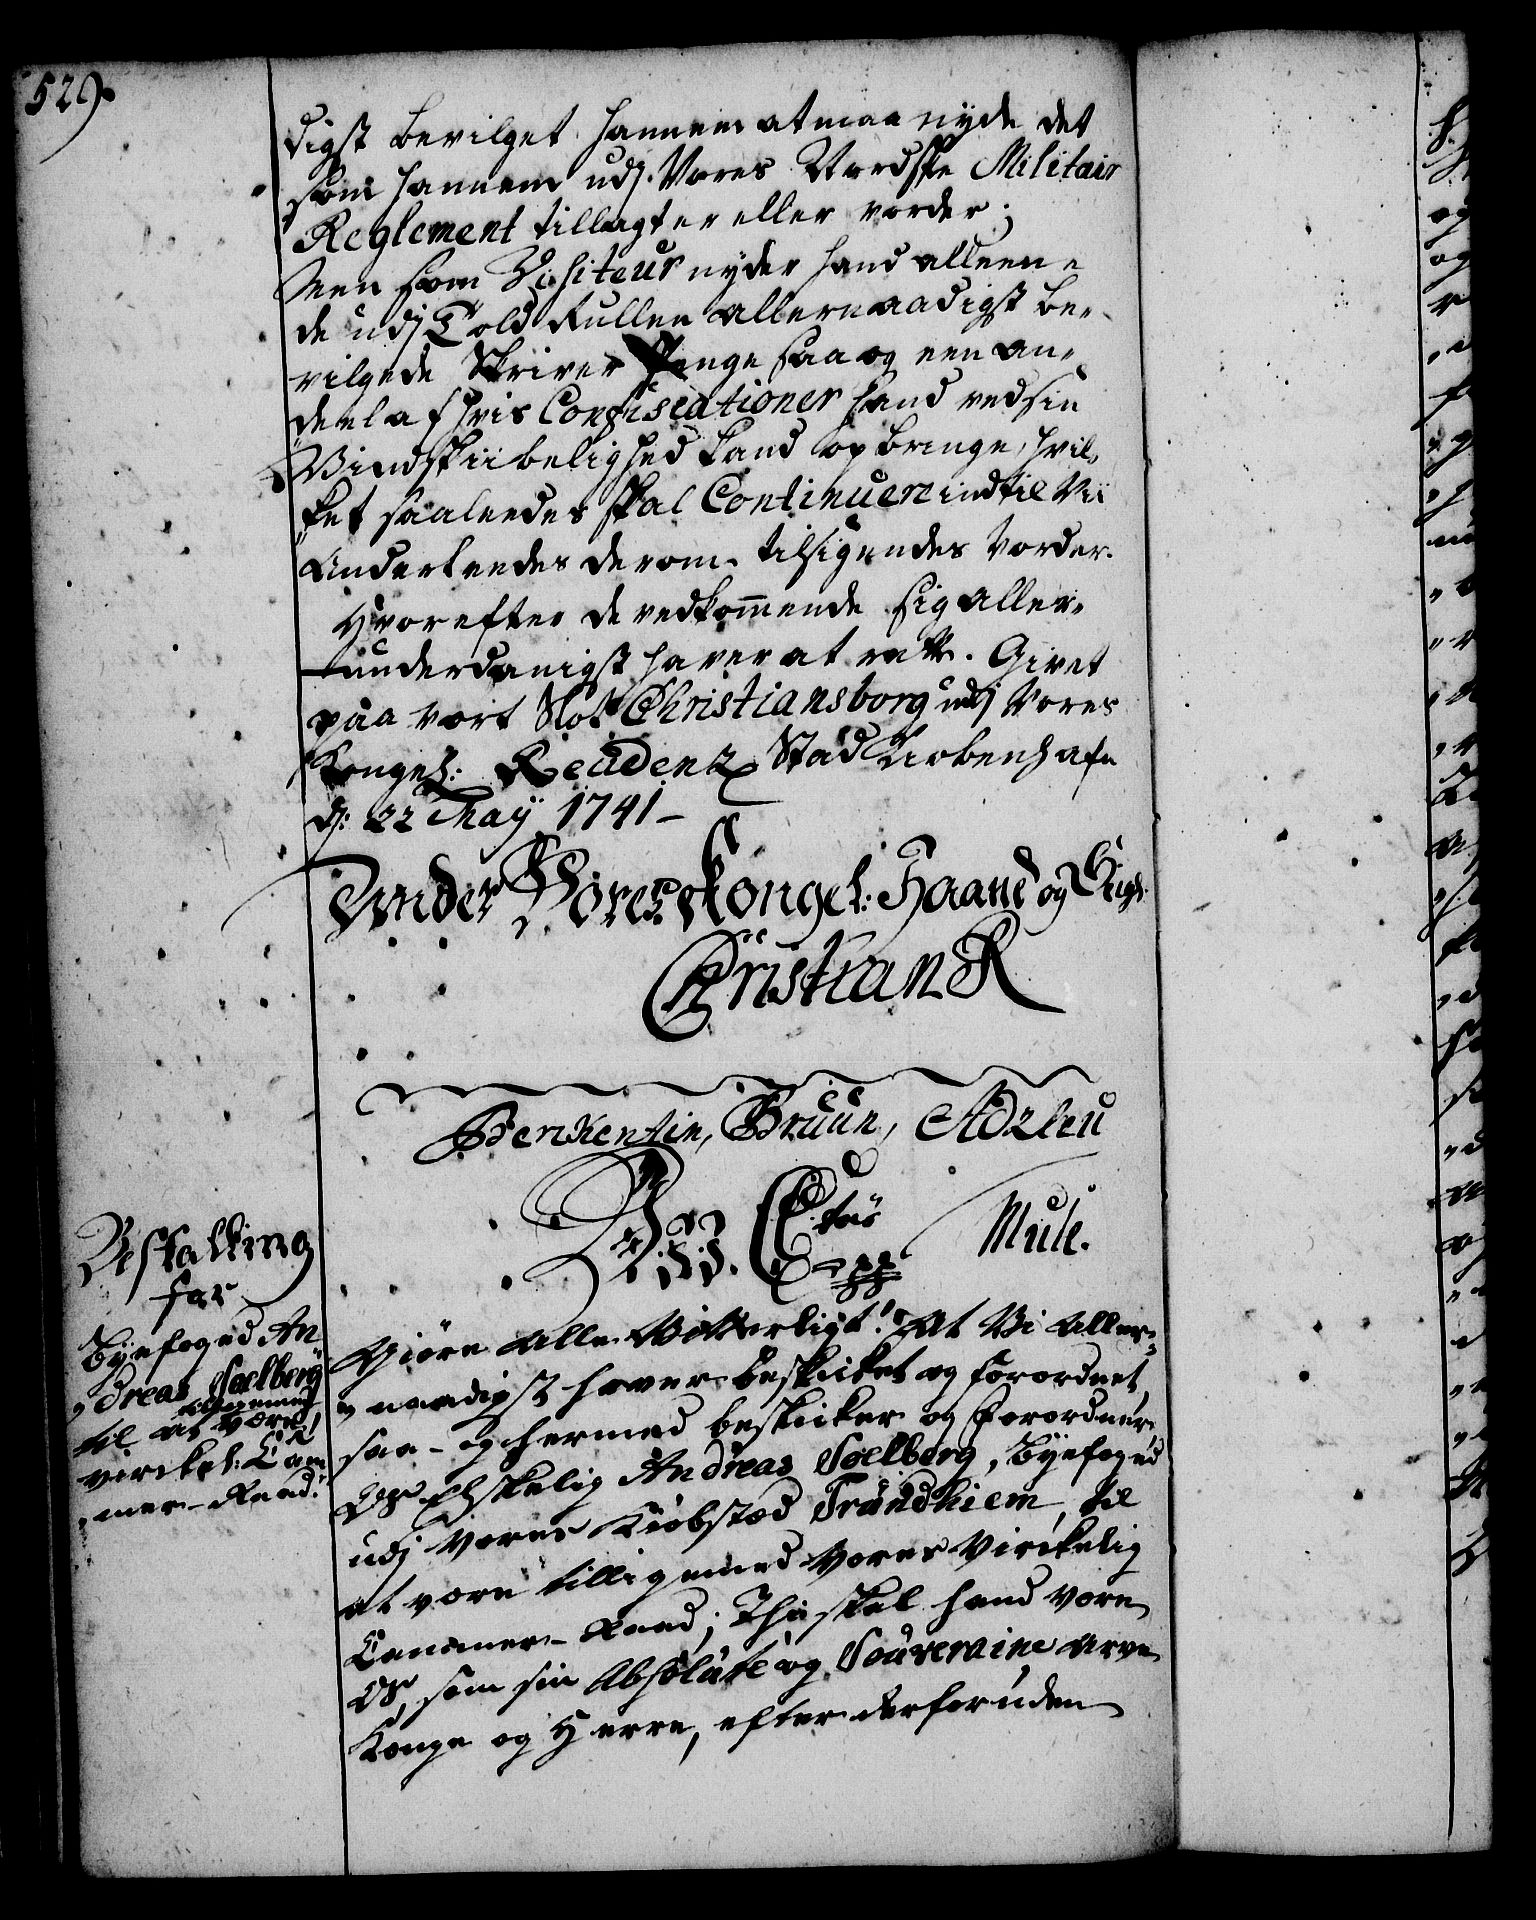 529.
digst bevilget hannem at maa nyde det
som hannem udj Vores Nordske Militair
Reglement tillagt er eller vorder;
Men som Visiteur nyder hand alleene
de udj Told Rullen allernaadigst be-
vilgede Skriver Penge saa og een an-
deel af hvis Confiscationer hand ved sin
Vindskiibelighed kand opbringe, hvil-
ket saaleedes skal Continuere indtil Vii
Anderleedes derom tilsigendes Vorder.
Hvorefter de vedkommende sig aller-
underdanigst haver at rette. Givet
paa vort Slot Christiansborg udj Vores
Kongel: Residentz Stad Kiøbenhafn
d: 22 Maij 1741 –
Under Vores Kongel: Haand og Signet
Christian R
Berckentin, Bruun, Adzleu
Wii C: 6tus
G: pp Mule.
Bestalling
for
Byefoged An
dreas Soelberg
til at være tilligemed
virckel: Cam
mer-Raad.
Giøre Alle Vitterligt! At Vi Aller-
naadigst haver beskicket og forordnet,
saa- og hermed beskicker og Forordner,
OS Elskelig Andreas Soelberg, Byefoged
udj Vores Kiøbsted Trundhiem, til
at være tilligemed Vores Virckelig
Cammer-Raad; Thi skal hand være
OS, som sin Absolute og Souveraine Arve
Konge og Herre, efter derforuden